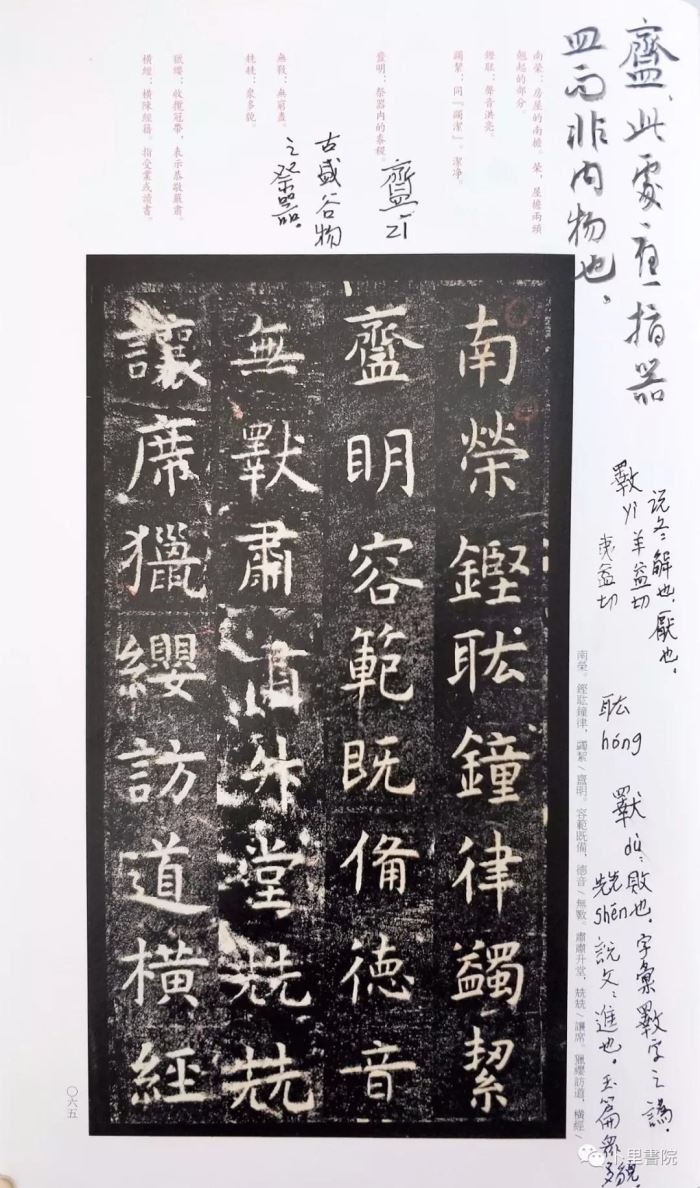 齍，此處應指器
皿而非內物也，
南榮：房屋的南檐。榮，屋檐兩頭
翹起的部分。
鏗耾：聲音洪亮。
蠲絜：同『蠲潔』。潔净。
齍明：祭器内的黍稷。
無斁：無窮盡。
兟兟：衆多貌。
獵纓：收攬冠帶，表示恭敬嚴肅。
橫經：橫陳經籍。指受業或讀書。
齍zī
古盛谷物
之祭器。
南榮鏗耾鐘律蠲絜
齍明容範既備德音
無斁肅肅升堂兟兟
讓席獵纓訪道橫經
说文：解也，厭也。
斁yì羊益切
夷益切
南榮。鏗耾鐘律，蠲絜／齍明。容範既備，德音／無斁。肅肅升堂，兟兟／讓席。獵纓訪道，橫經／
耾hóng
斁dù：敗也，字彙斁字之譌，
兟shēn說文：進也。玉篇衆多貌。
〇六五
卜里書院